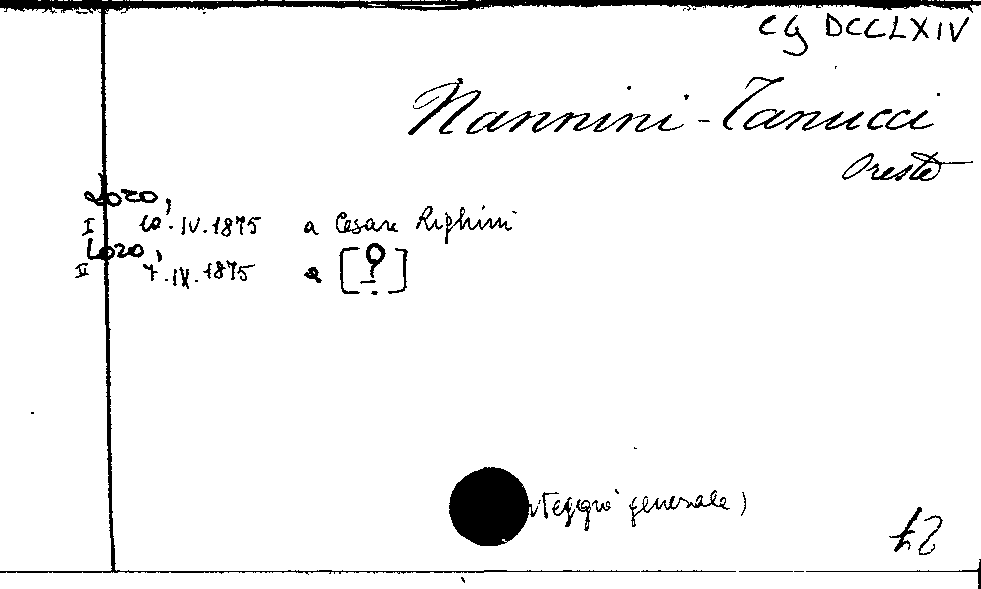 CG DCCLXIV
Nannini-Tanucci
Oreste
Lozo,
I 10.IV.1875 a Cesare Righini
Lozo,
II 7.IX.1875 a [?]
generale)